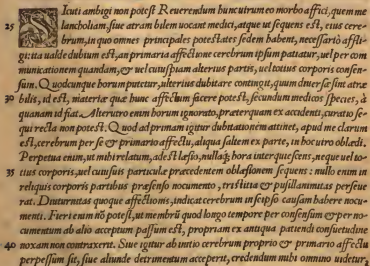 SIcuti ambigi non potest Reuerendum hunc uirum eo morbo affici, quem me
25 lancholiam, siue atram bilem uocant medici, atque ut sequens est, eius cere-
brum, in quo omnes principales potestates sedem habent, necessariò affli-
gi: ita ualde dubium est, an primaria affectione cerebrum ipsum patiatur, uel per com
municationem quandam, & uel cuiuspiam alterius partis, uel totius corporis consen-
sum. Quodcunque horum putetur, ulterius dubitare contingit, quum diuersæ sint atræ
30 bilis, id est, materiæ quæ hunc affectum facere potest, secundum medicos species, à
quanam id fiat. Alterutro enim horum ignorato, præterquam ex accidenti, curatio se-
qui recta non potest. Quod ad primam igitur dubitationem attinet, apud me clarum
est, cerebrum per se & primario affectu, aliqua saltem ex parte, in hoc uiro oblædi.
Perpetua enim, ut mihi relatum, ades læsio, nullaq; hora interquiescens, neque uel to-
35 tius corporis, uel cuiusuis particulæ præcedentem oblæsionem sequens: nullo enim in
reliquis corporis partibus præsenso nocumento, tristitia & pusillanimitas perseue
rat. Diuturnitas quoque affectionis, indicat cerebrum in seipso causam habere nocu-
menti. Fieri enim nõ potest, ut membrũ quod longo tempore per consensum & per no-
cumentum ab alio acceptum passum est, propriam ex antiqua patiendi consuetudine
40 noxam non contraxerit. Siue igitur ab initio cerebrum proprio & primario affectu
perpessum sit, siue aliunde detrimentum acceperit, credendum mihi omnino uidetur,